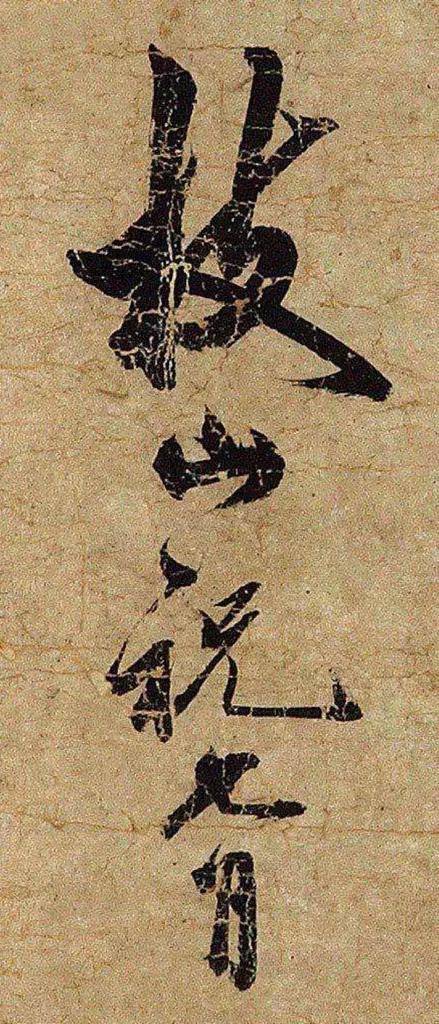 枝山祝允明